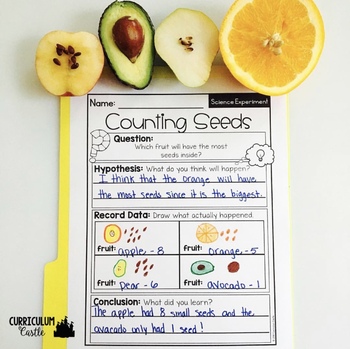 Name:
Science Experiment
Counting Seeds
Question:
Which fruit will have the most
seeds inside?
Hypothesis: What do you think will happen?
I think that the orange will have
the most seeds since it is the biggest.
Record Data: Draw what actually happened.
fruit: apple - 8
fruit: orange - 5
fruit: Pear - 6
fruit: avocado - 1
Conclusion: What did you learn?
The apple had 8 small seeds and the
avacado only had 1 seed!
CURRICULUM
Castle